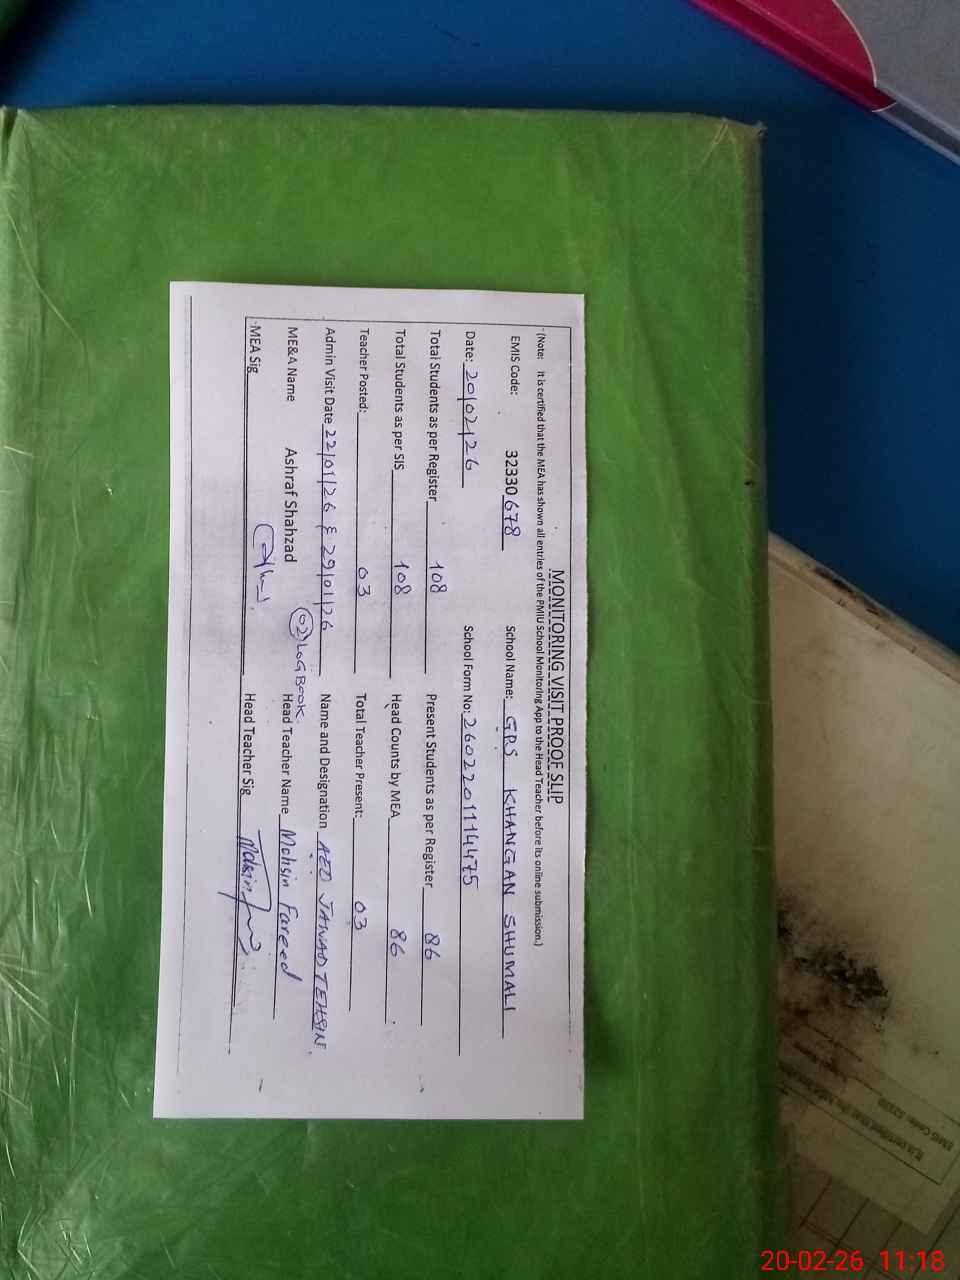 MONITORING VISIT PROOF SLIP
(Note: It is certified that the MEA has shown all entries of the PMIU School Monitoring App to the Head Teacher before its online submission.)
EMIS Code: 32330678 School Name: GPS KHANGAN SHUMALI
Date: 20/02/26 School Form No: 2602201114475
Total Students as per Register 108 Present Students as per Register 86
Total Students as per SIS 108 Head Counts by MEA 86
Teacher Posted: 03 Total Teacher Present: 03
Admin Visit Date 22/01/26 & 29/01/26 Name and Designation AEO JAWAD TEHSIN
02 LOGBOOK.
ME&A Name Ashraf Shahzad Head Teacher Name Mohsin Fareed
MEA Sig Head Teacher Sig Mohsin
EMIS Code: 3233
It is certified that the MEA
20-02-26 11:18